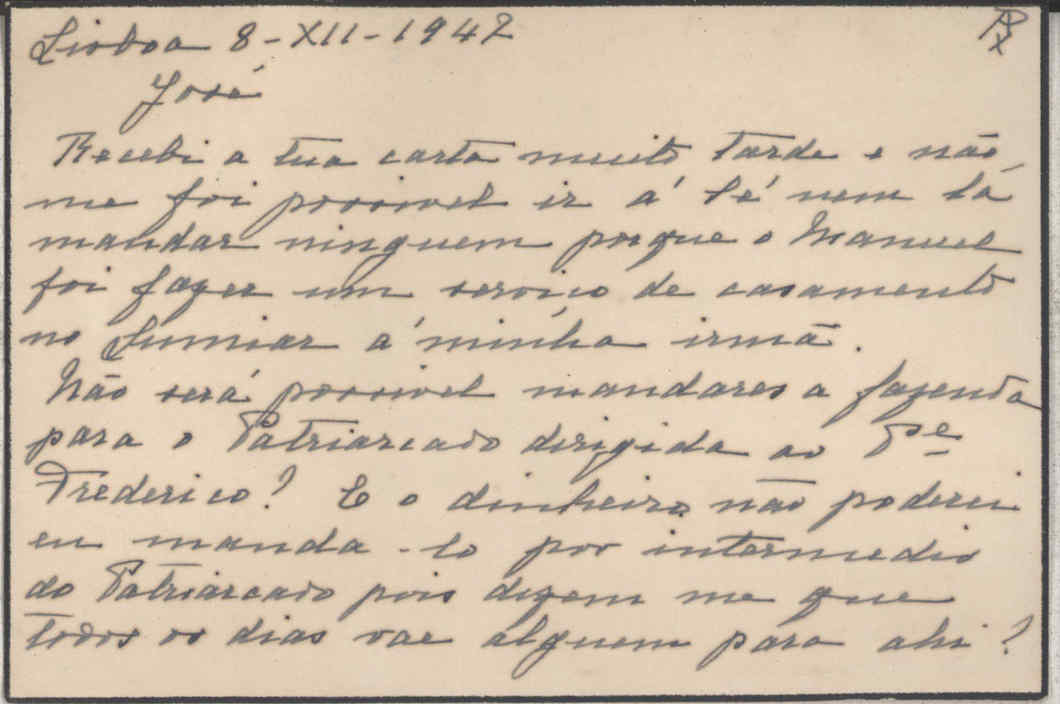 Lisboa 8-XII-1942
José
Recebi a tua carta muito tarde e não
me foi possivel ir á Sé nem lá
mandar ninguem porque o Manuel
foi fazer um serviço de casamento
no Lumiar á minha irmã.
Não será possivel mandares a fazenda
para o Patriarcado dirigida ao Pe
Frederico? E o dinheiro não poderei
eu manda-lo por intermedio
do Patriarcado pois dizem me que
todos os dias vae alguem para ahi?